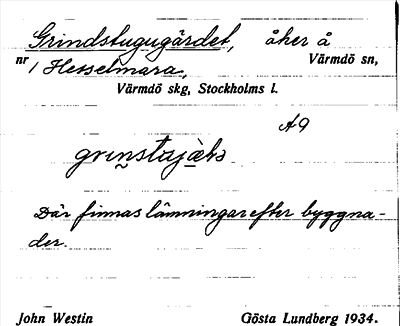 Grindstugugärdet, åker å
nr 1 Hesselmara, Värmdö sn,
Värmdö skg, Stockholms l.
A9
grinstajæ̀ts
Där finnas lämningar efter byggna-
der.
John Westin Gösta Lundberg 1934.